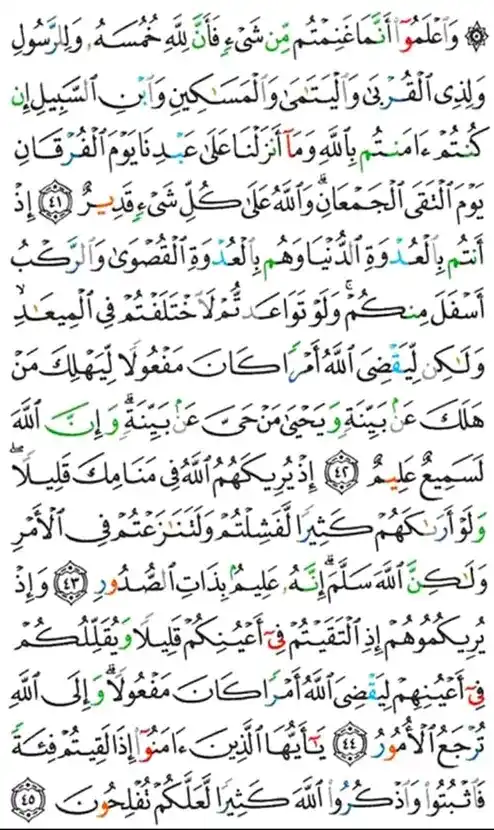 ۞ وَٱعۡلَمُوٓاْ أَنَّمَا غَنِمۡتُم مِّن شَيۡءٖ فَأَنَّ لِلَّهِ خُمُسَهُۥ وَلِلرَّسُولِ
وَلِذِي ٱلۡقُرۡبَىٰ وَٱلۡيَتَٰمَىٰ وَٱلۡمَسَٰكِينِ وَٱبۡنِ ٱلسَّبِيلِ إِن
كُنتُمۡ ءَامَنتُم بِٱللَّهِ وَمَآ أَنزَلۡنَا عَلَىٰ عَبۡدِنَا يَوۡمَ ٱلۡفُرۡقَانِ
يَوۡمَ ٱلۡتَقَى ٱلۡجَمۡعَانِۗ وَٱللَّهُ عَلَىٰ كُلِّ شَيۡءٖ قَدِيرٌ ٤١ إِذۡ
أَنتُم بِٱلۡعُدۡوَةِ ٱلدُّنۡيَا وَهُم بِٱلۡعُدۡوَةِ ٱلۡقُصۡوَىٰ وَٱلرَّكۡبُ
أَسۡفَلَ مِنكُمۡۚ وَلَوۡ تَوَاعَدتُّمۡ لَٱخۡتَلَفۡتُمۡ فِي ٱلۡمِيعَٰدِ
وَلَٰكِن لِّيَقۡضِيَ ٱللَّهُ أَمۡرٗا كَانَ مَفۡعُولٗا لِّيَهۡلِكَ مَنۡ
هَلَكَ عَنۢ بَيِّنَةٖ وَيَحۡيَىٰ مَنۡ حَيَّ عَنۢ بَيِّنَةٖۗ وَإِنَّ ٱللَّهَ
لَسَمِيعٌ عَلِيمٌ ٤٢ إِذۡ يُرِيكَهُمُ ٱللَّهُ فِي مَنَامِكَ قَلِيلٗاۖ
وَلَوۡ أَرَىٰكَهُمۡ كَثِيرٗا لَّفَشِلۡتُمۡ وَلَتَنَٰزَعۡتُمۡ فِي ٱلۡأَمۡرِ
وَلَٰكِنَّ ٱللَّهَ سَلَّمَۗ إِنَّهُۥ عَلِيمُۢ بِذَاتِ ٱلصُّدُورِ ٤٣ وَإِذۡ
يُرِيكُمُوهُمۡ إِذِ ٱلۡتَقَيۡتُمۡ فِيٓ أَعۡيُنِكُمۡ قَلِيلٗا وَيُقَلِّلُكُمۡ
فِيٓ أَعۡيُنِهِمۡ لِيَقۡضِيَ ٱللَّهُ أَمۡرٗا كَانَ مَفۡعُولٗاۗ وَإِلَى ٱللَّهِ
تُرۡجَعُ ٱلۡأُمُورُ ٤٤ يَٰٓأَيُّهَا ٱلَّذِينَ ءَامَنُوٓاْ إِذَا لَقِيتُمۡ فِئَةٗ
فَٱثۡبُتُواْ وَٱذۡكُرُواْ ٱللَّهَ كَثِيرٗا لَّعَلَّكُمۡ تُفۡلِحُونَ ٤٥